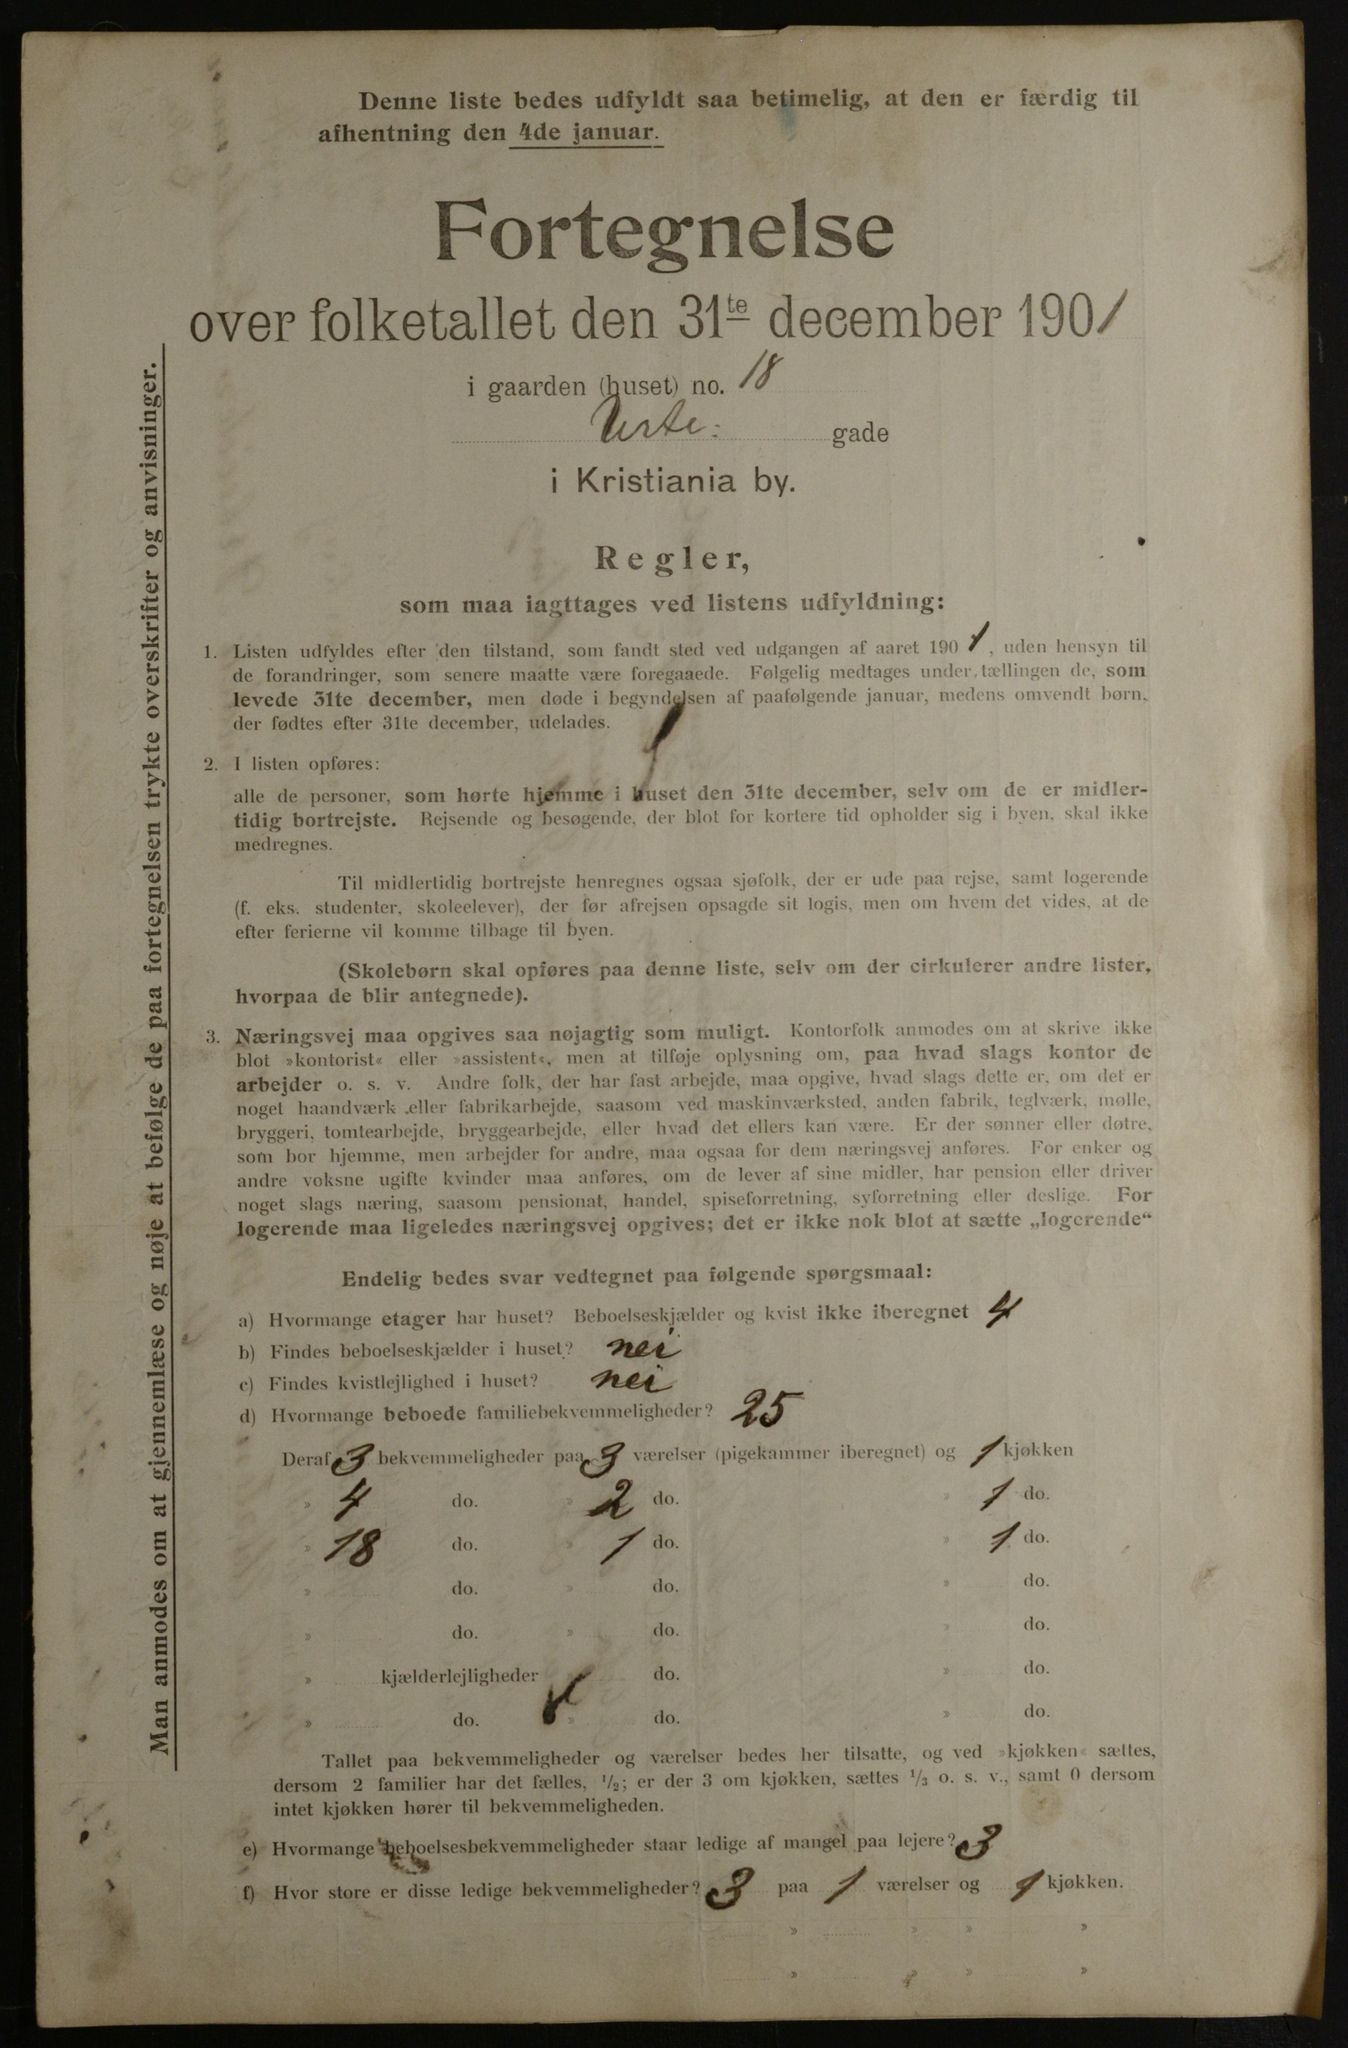 Denne liste bedes udfyldt saa betimelig, at den er færdig til
afhentning den 4de januar.
Fortegnelse
over folketallet den 31te december 1901
i gaarden (huset) no. 18
Urte: gade
i Kristiania by.
Regler,
som maa iagttages ved listens udfyldning:
1. Listen udfyldes efter den tilstand, som fandt sted ved udgangen af aaret 1901, uden hensyn til
de forandringer, som senere maatte være foregaaede. Følgelig medtages under tællingen de, som
levede 31te december, men døde i begyndelsen af paafølgende januar, medens omvendt børn,
der fødtes efter 31te december, udelades.
2. I listen opføres:
alle de personer, som hørte hjemme i huset den 31te december, selv om de er midler-
tidig bortrejste. Rejsende og besøgende, der blot for kortere tid opholder sig i byen, skal ikke
medregnes.
Til midlertidig bortrejste henregnes ogsaa sjøfolk, der er ude paa rejse, samt logerende
(f. eks. studenter, skoleelever), der før afrejsen opsagde sit logis, men om hvem det vides, at de
efter ferierne vil komme tilbage til byen.
(Skolebørn skal opføres paa denne liste, selv om der cirkulerer andre lister,
hvorpaa de blir antegnede).
3. Næringsvej maa opgives saa nøjagtig som muligt. Kontorfolk anmodes om at skrive ikke
blot »kontorist« eller »assistent«, men at tilføje oplysning om, paa hvad slags kontor de
arbejder o. s. v. Andre folk, der har fast arbejde, maa opgive, hvad slags dette er, om det er
noget haandværk eller fabrikarbejde, saasom ved maskinværksted, anden fabrik, teglværk, mølle,
bryggeri, tomtearbejde, bryggearbejde, eller hvad det ellers kan være. Er der sønner eller døtre,
som bor hjemme, men arbejder for andre, maa ogsaa for dem næringsvej anføres. For enker og
andre voksne ugifte kvinder maa anføres, om de lever af sine midler, har pension eller driver
noget slags næring, saasom pensionat, handel, spiseforretning, syforretning eller deslige. For
logerende maa ligeledes næringsvej opgives; det er ikke nok blot at sætte „logerende“
Endelig bedes svar vedtegnet paa følgende spørgsmaal:
a) Hvormange etager har huset? Beboelseskjælder og kvist ikke iberegnet 4
b) Findes beboelseskjælder i huset? nei
c) Findes kvistlejlighed i huset? nei
d) Hvormange beboede familiebekvemmeligheder? 25
Deraf 3 bekvemmeligheder paa 3 værelser (pigekammer iberegnet) og 1 kjøkken
» 4 do. » 2 do. » 1 do.
» 18 do. » 1 do. » 1 do.
» do. » do. » do.
» do. » do. » do.
» kjælderlejligheder do. » do.
» do. » do. » do.
Tallet paa bekvemmeligheder og værelser bedes her tilsatte, og ved »kjøkken« sættes,
dersom 2 familier har det fælles, 1/2; er der 3 om kjøkken, sættes 1/3 o. s. v., samt 0 dersom
intet kjøkken hører til bekvemmeligheden.
e) Hvormange beboelsesbekvemmeligheder staar ledige af mangel paa lejere? 3
f) Hvor store er disse ledige bekvemmeligheder? 3 paa 1 værelser og 1 kjøkken.
» » » »
» » » »
Man anmodes om at gjennemlæse og nøje at befølge de paa fortegnelsen trykte overskrifter og anvisninger.